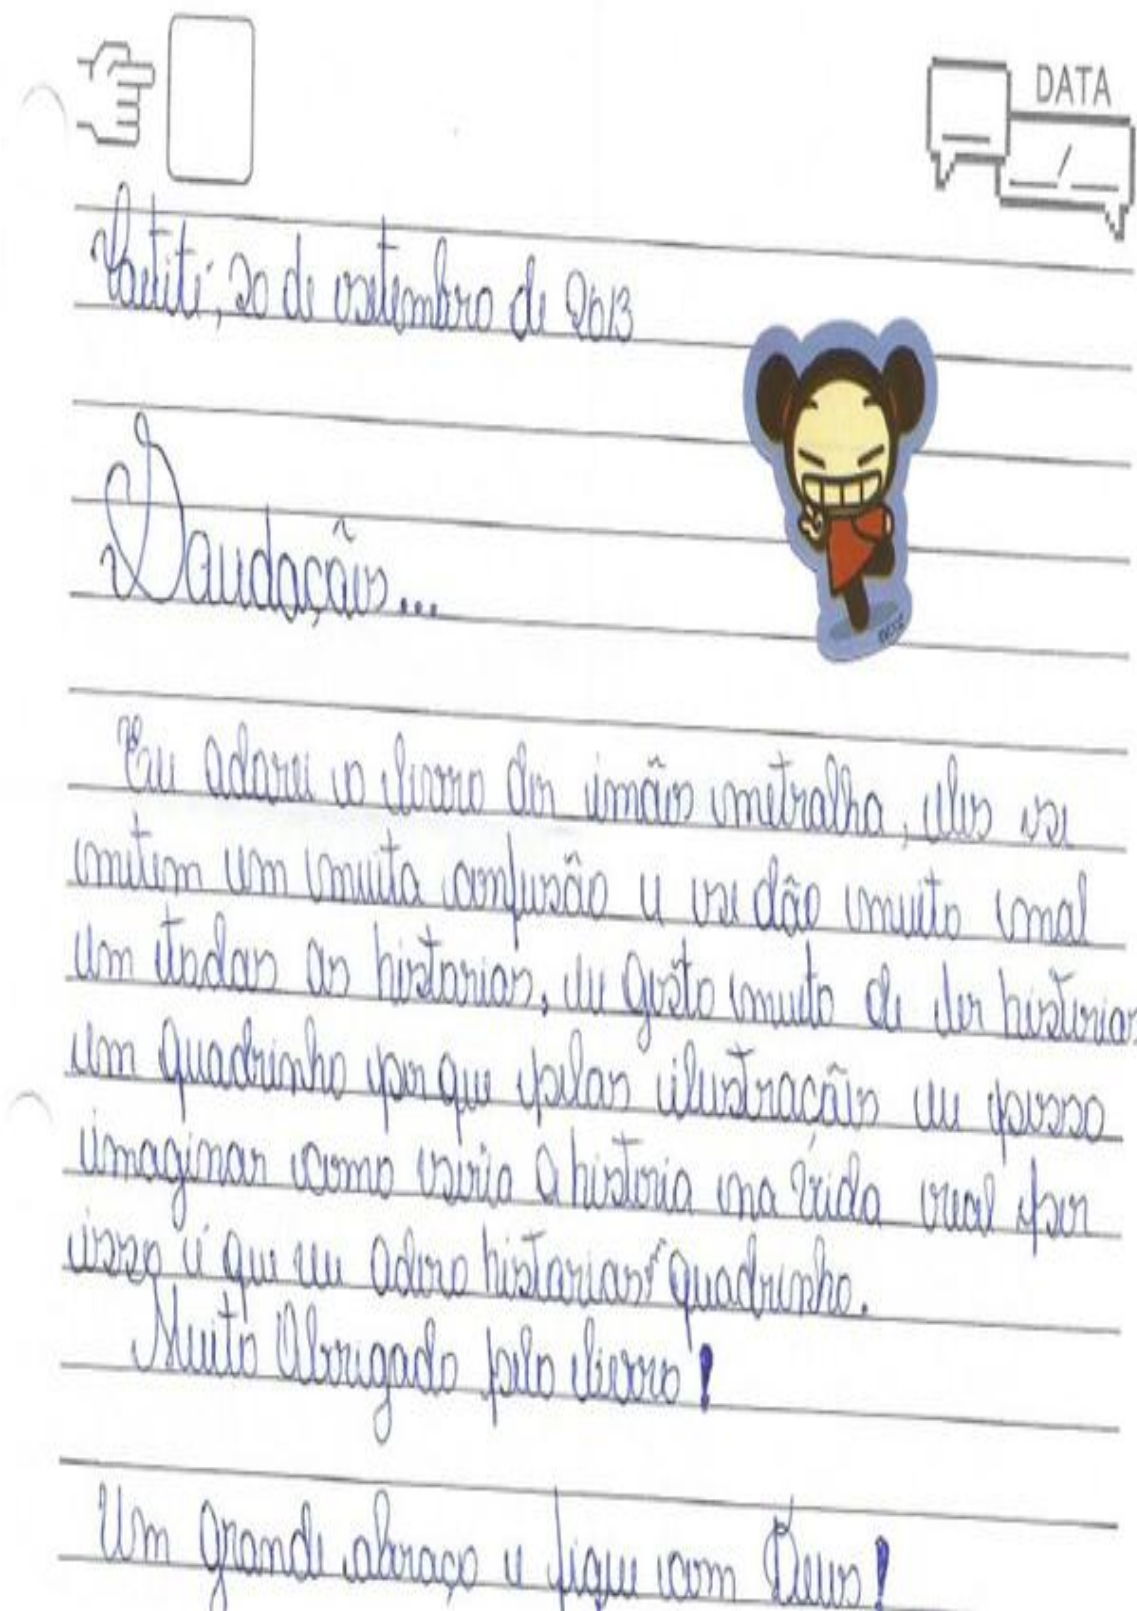 DATA
/
Caetité, 20 de setembro de 2013
Saudações...
Eu adorei o livro dos imãos metralha, eles se
metem em muita confusão e se dão muito mal
em todas as historias, eu gosto muito de ler historias
em quadrinho por que pelas ilustrações eu posso
imaginar como seria a historia na vida real por
isso é que eu adoro historias quadrinho.
Muito Obrigado pelo livro!
Um grande abraço e fique com Deus!